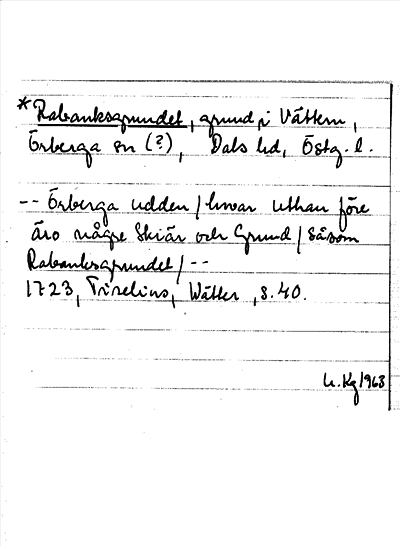 *Rabanksgrundet, grund i Vättern,
Örberga sn (?), Dals hd, Östg. l.
-- Örberga udden / hwar uthan före
äro någre Skiär och Grund / Såsom
Rabanksgrundet / --
1723, Tiselius, Wätter, s. 40.
U. Kg 1963